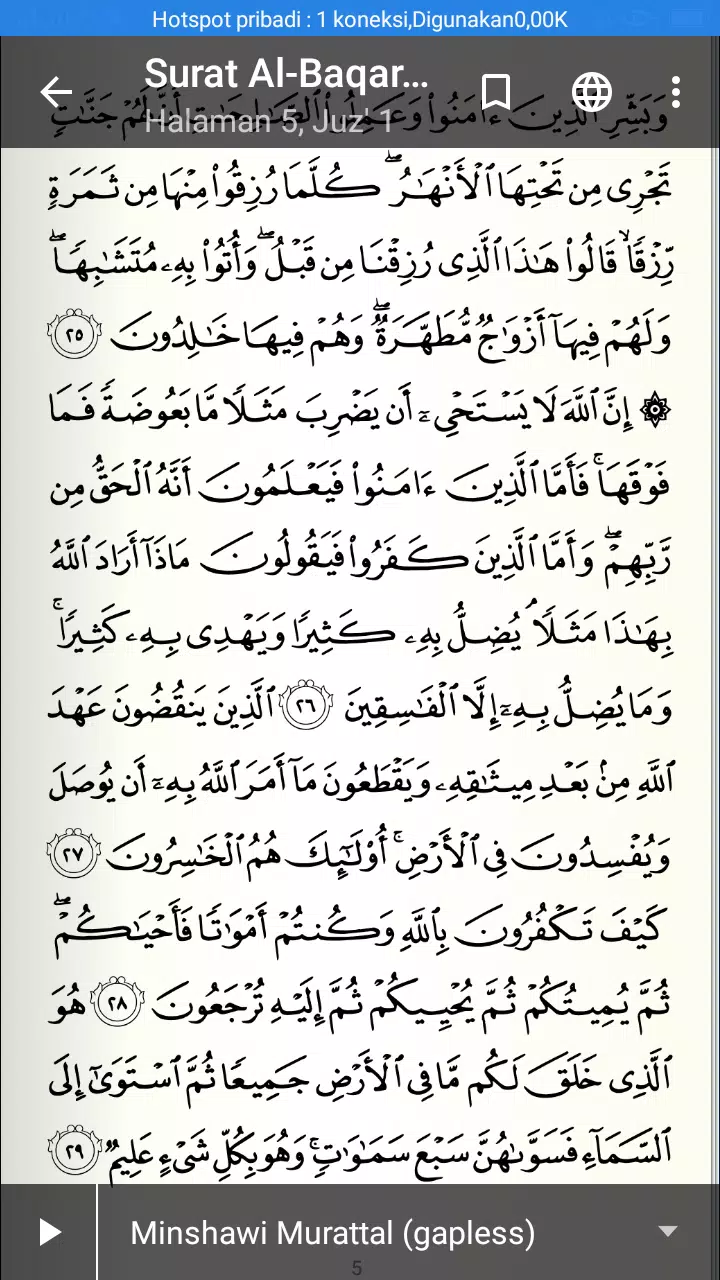 Hotspot pribadi : 1 koneksi,Digunakan0,00K
Surat Al-Baqar...
Halaman 5, Juz' 1
وَبَشِّرِ ٱلَّذِينَ ءَامَنُوا۟ وَعَمِلُوا۟ ٱلصَّـٰلِحَـٰتِ أَنَّ لَهُمْ جَنَّـٰتٍ
تَجْرِى مِن تَحْتِهَا ٱلْأَنْهَـٰرُ ۖ كُلَّمَا رُزِقُوا۟ مِنْهَا مِن ثَمَرَةٍ
رِّزْقًا ۙ قَالُوا۟ هَـٰذَا ٱلَّذِى رُزِقْنَا مِن قَبْلُ ۖ وَأُتُوا۟ بِهِۦ مُتَشَـٰبِهًا ۖ
وَلَهُمْ فِيهَآ أَزْوَٰجٌ مُّطَهَّرَةٌ ۖ وَهُمْ فِيهَا خَـٰلِدُونَ ٢٥
۞ إِنَّ ٱللَّهَ لَا يَسْتَحْىِۦٓ أَن يَضْرِبَ مَثَلًا مَّا بَعُوضَةً فَمَا
فَوْقَهَا ۚ فَأَمَّا ٱلَّذِينَ ءَامَنُوا۟ فَيَعْلَمُونَ أَنَّهُ ٱلْحَقُّ مِن
رَّبِّهِمْ ۖ وَأَمَّا ٱلَّذِينَ كَفَرُوا۟ فَيَقُولُونَ مَاذَآ أَرَادَ ٱللَّهُ
بِهَـٰذَا مَثَلًا ۘ يُضِلُّ بِهِۦ كَثِيرًا وَيَهْدِى بِهِۦ كَثِيرًا ۚ
وَمَا يُضِلُّ بِهِۦٓ إِلَّا ٱلْفَـٰسِقِينَ ٢٦ ٱلَّذِينَ يَنقُضُونَ عَهْدَ
ٱللَّهِ مِنۢ بَعْدِ مِيثَـٰقِهِۦ وَيَقْطَعُونَ مَآ أَمَرَ ٱللَّهُ بِهِۦٓ أَن يُوصَلَ
وَيُفْسِدُونَ فِى ٱلْأَرْضِ ۚ أُو۟لَـٰٓئِكَ هُمُ ٱلْخَـٰسِرُونَ ٢٧
كَيْفَ تَكْفُرُونَ بِٱللَّهِ وَكُنتُمْ أَمْوَٰتًا فَأَحْيَـٰكُمْ ۖ
ثُمَّ يُمِيتُكُمْ ثُمَّ يُحْيِيكُمْ ثُمَّ إِلَيْهِ تُرْجَعُونَ ٢٨ هُوَ
ٱلَّذِى خَلَقَ لَكُم مَّا فِى ٱلْأَرْضِ جَمِيعًا ثُمَّ ٱسْتَوَىٰٓ إِلَى
ٱلسَّمَآءِ فَسَوَّىٰهُنَّ سَبْعَ سَمَـٰوَٰتٍ ۚ وَهُوَ بِكُلِّ شَىْءٍ عَلِيمٌ ٢٩
Minshawi Murattal (gapless)
5